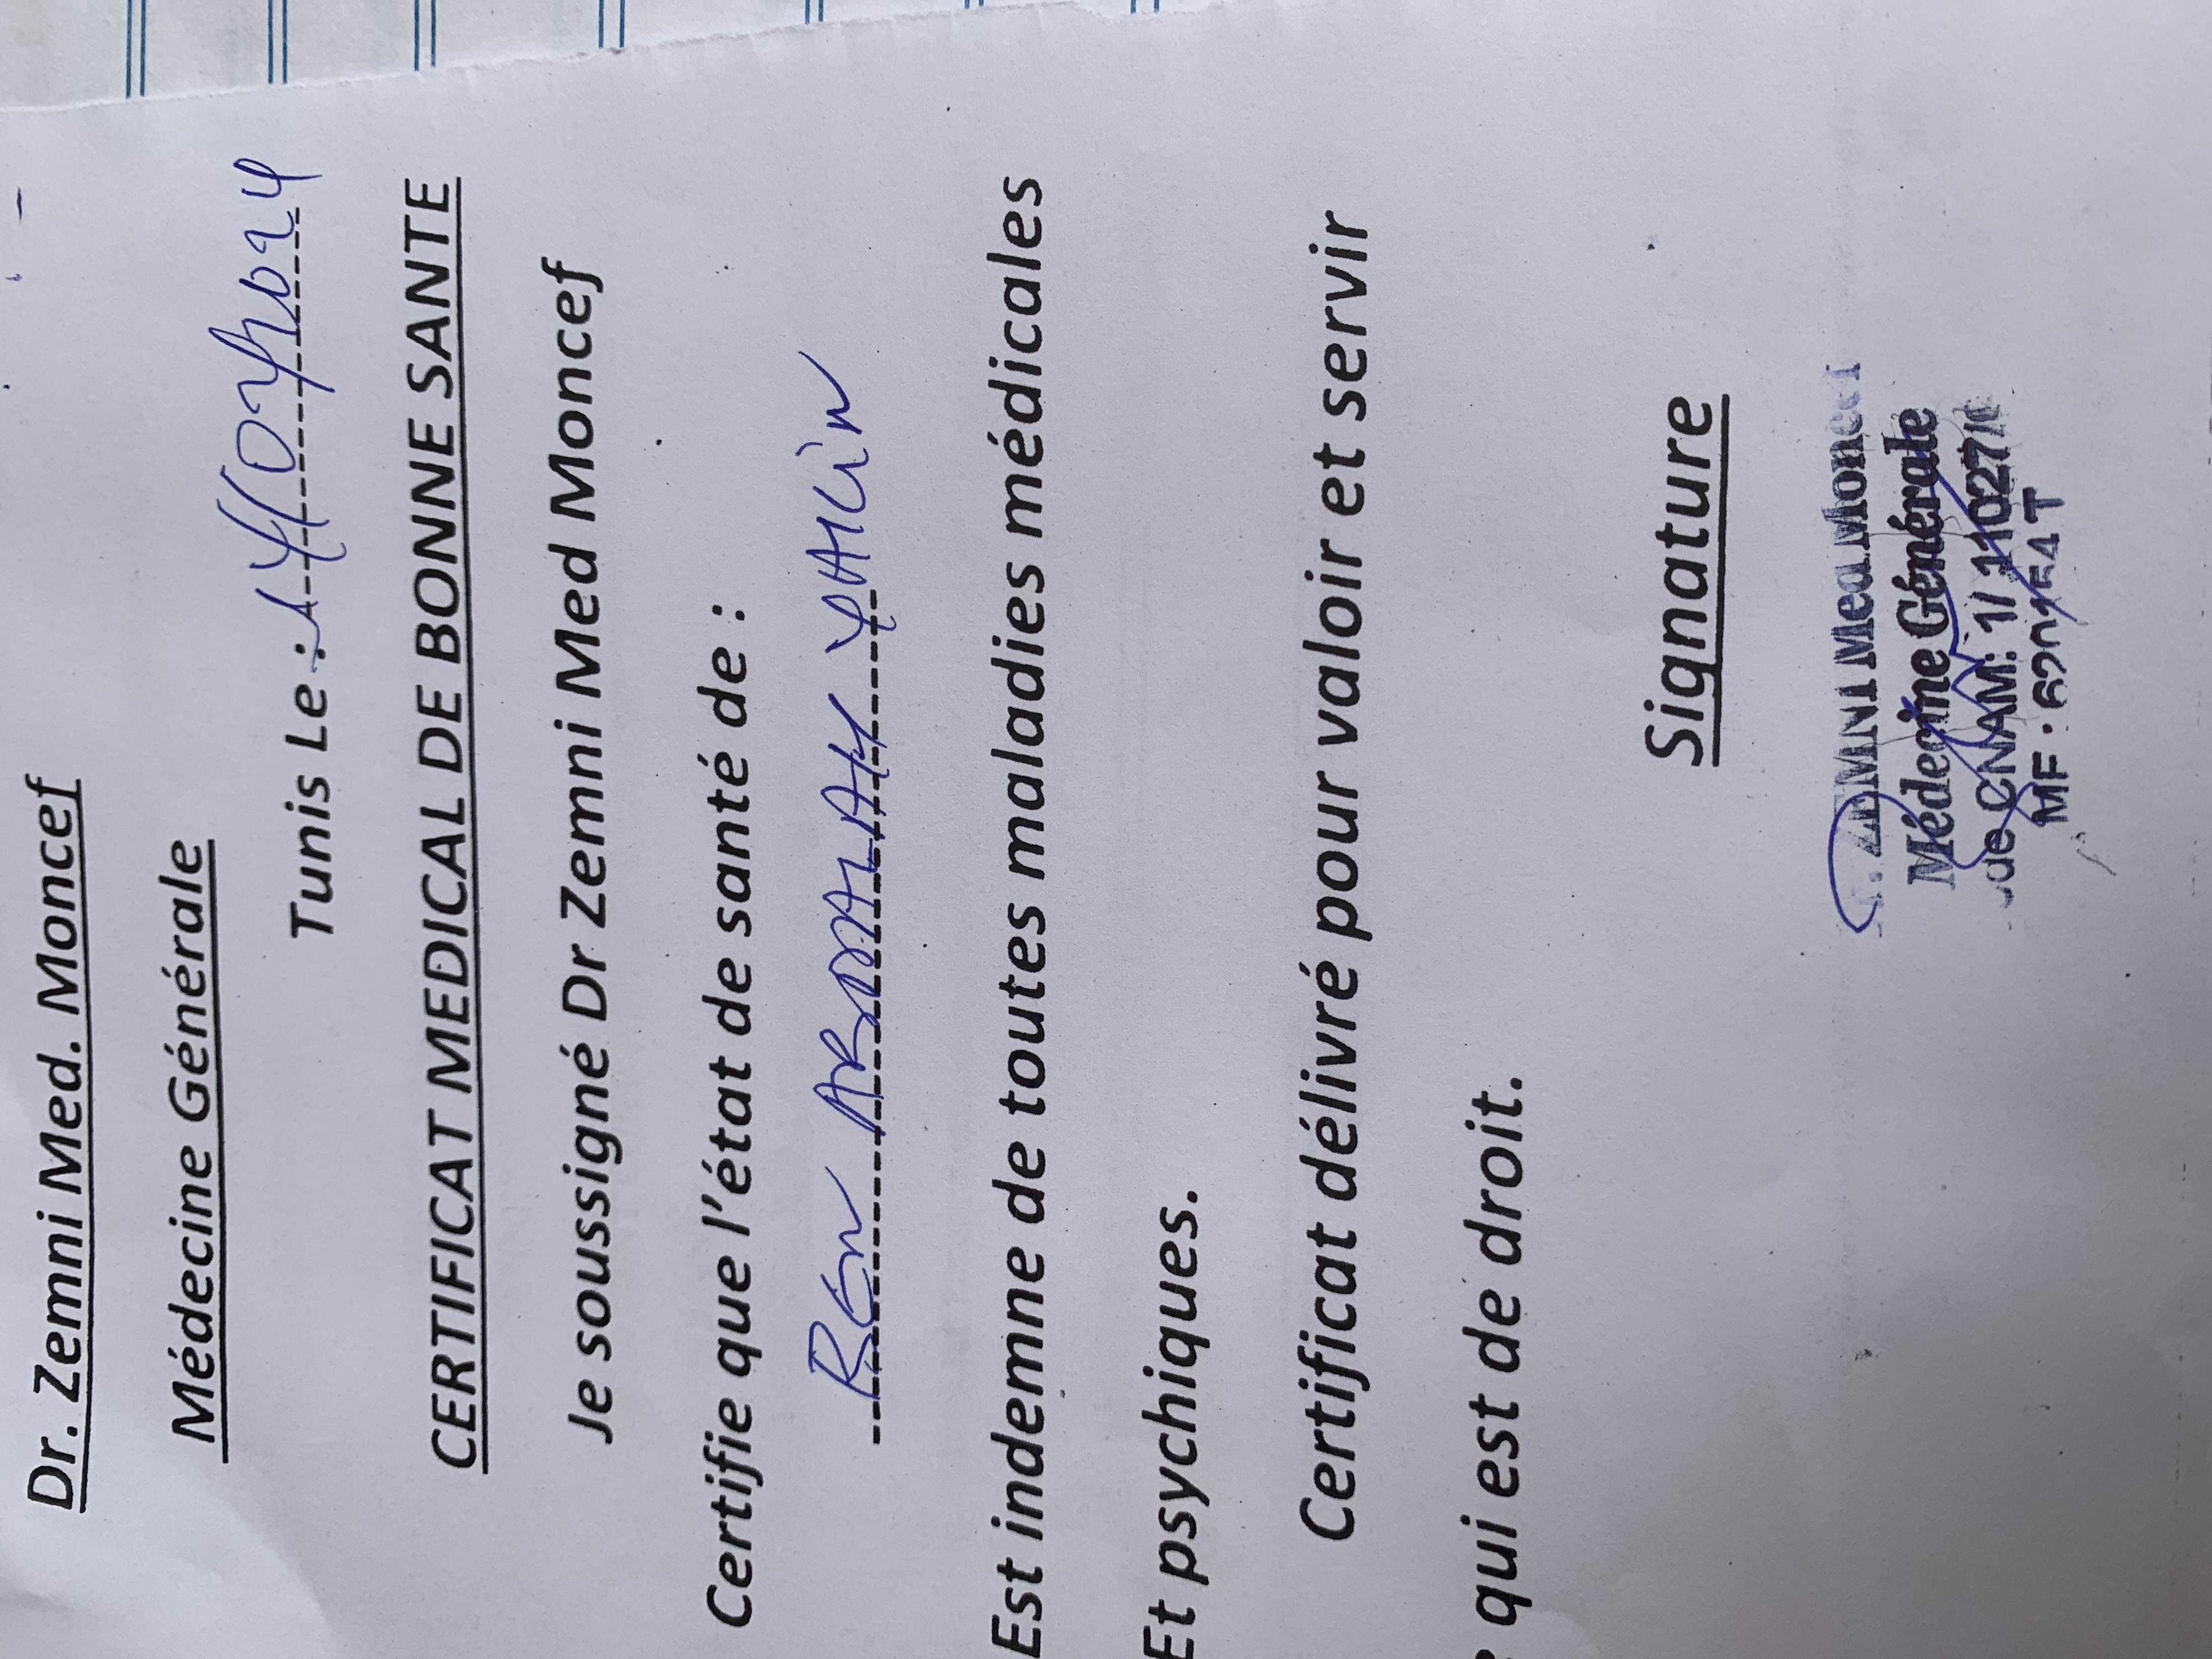 Dr. Zemni Med. Moncef
Médecine Générale
Tunis Le :
CERTIFICAT MEDICAL DE BONNE SANTE
Je soussigné Dr Zemni Med Moncef
Certifie que l'état de santé de :
Ben ABDALAH YAHCIN
Est indemne de toutes maladies médicales
Et psychiques.
Certificat délivré pour valoir et servir
qui est de droit.
Signature
ZEMNI Med Moncef
Médecine Générale
CNAM: 1/
MF :